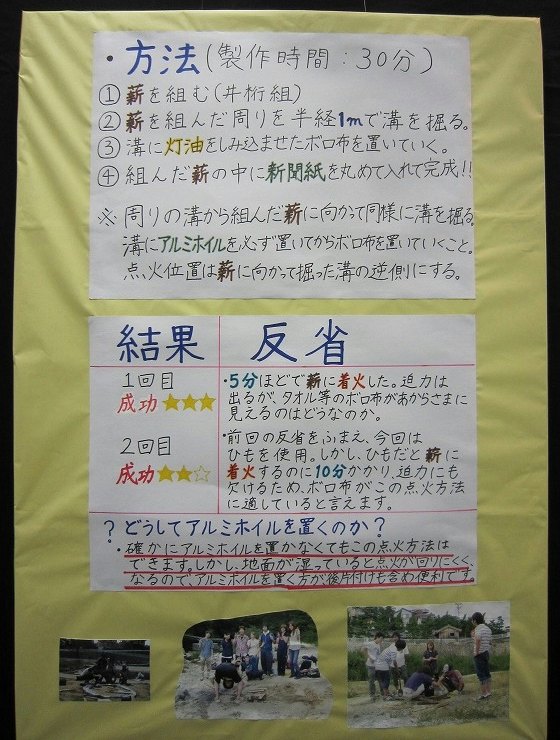 ・方法(製作時間:30分)
①薪を組む(井桁組)
②薪を組んだ周りを半経1mで溝を掘る。
③溝に灯油をしみ込ませたボロ布を置いていく。
④組んだ薪の中に新聞紙を丸めて入れて完成!!
※周りの溝から組んだ薪に向かって同様に溝を掘る。
溝にアルミホイルを必ず置いてからボロ布を置いていくこと。
点火位置は薪に向かって掘った溝の逆側にする。
結果 反省
1回目
成功★★★
・5分ほどで薪に着火した。迫力は
出るが、タオル等のボロ布があからさまに
見えるのはどうなのか。
2回目
成功★★☆
・前回の反省をふまえ、今回は
ひもを使用。しかし、ひもだと薪に
着火するのに10分かかり、迫力にも
欠けるため、ボロ布がこの点火方法
に適していると言えます。
?どうしてアルミホイルを置くのか?
・確かにアルミホイルを置かなくてもこの点火方法は
できます。しかし、地面が湿っていると点火が回りにくく、
なるので、アルミホイルを置く方が後片付けも含め便利です。